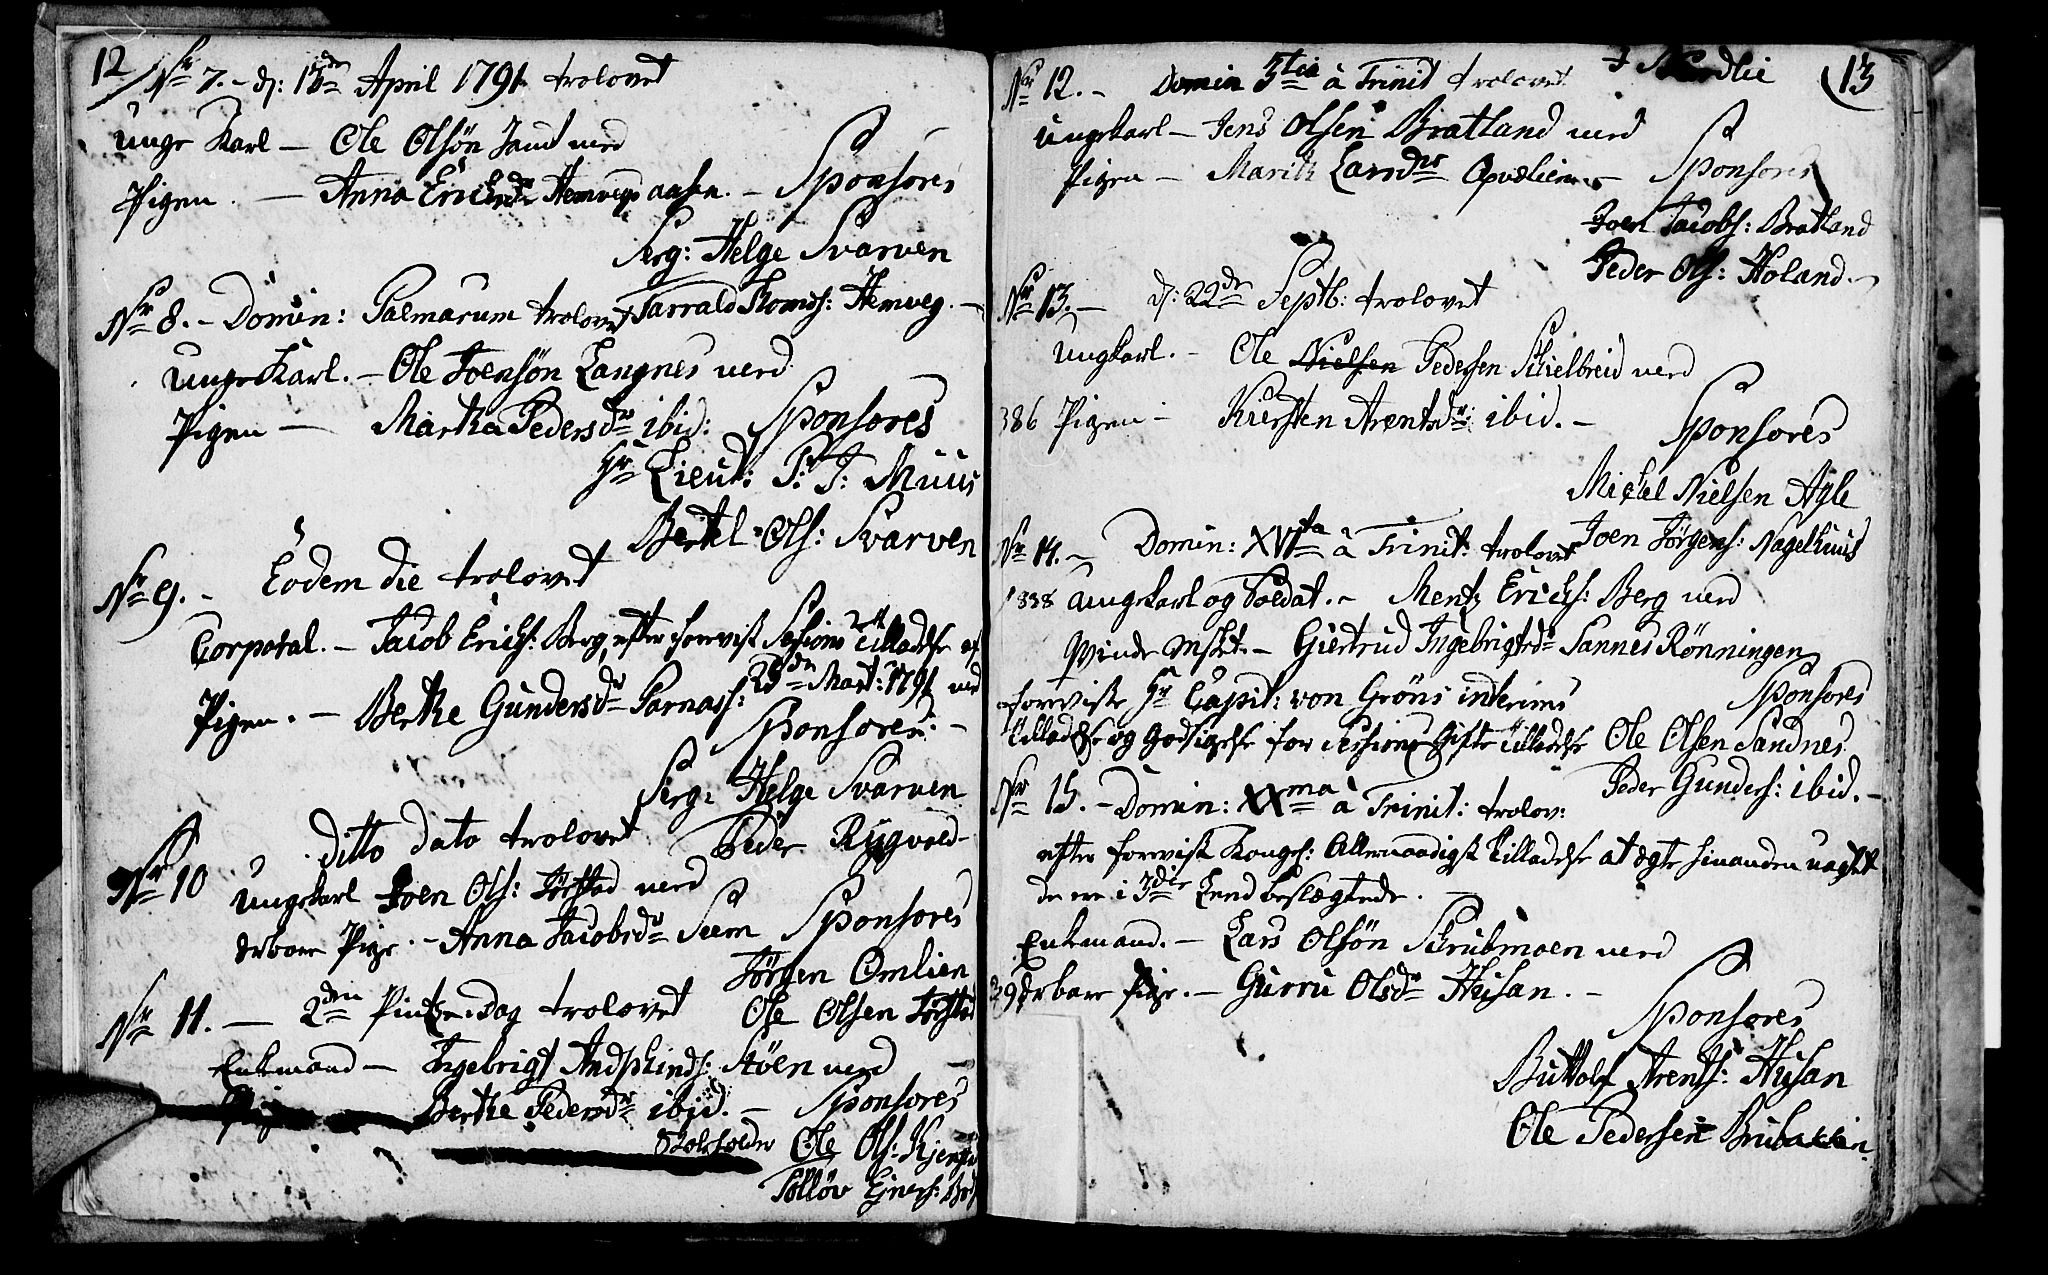 12
Nr 7. - d: 13de April 1791 trolovet
Unge Karl - Ole Olsön med
Pigen. - Anna Ericksdr aasen. - Sponsores
Serg: Helge Svarven
Tarrald Thomds: Hemveg. -
Nr 8. - Domin: Palmarum trolovet
Unge Karl. - Ole Joensön Langnes med
Pigen - Martha Pedersdr ibid: Sponsores
Hr Lieut: P: J: Muus
Bertel Ols: Svarven
Nr 9. - Eodem die trolovet
Corporal. - Jacob Erichs: Berg, efter forevist Sessions tilladelse af
28de Mart: 1791 med
Pigen. - Berthe Gundersdr Parnass: Sponsores: -
Serg: Helge Svarven
Peder Rygvold -
Nr 10 ditto dato trolovet
Ungekarl Joen Ols: Törstad med
ærbare Pige. - Anna Jacobsdr Seem Sponsores
Jörgen Omlien
Ole Olsen Törstad
Nr 11. - 2den Pintze-Dag trolovet
Enkemand - Ingebrigt Andskinds: Stöen med
Pige Berthe Pedersdr ibid. - Sponsores
Skoleholder Ole Ols: Kjenstad
Tolløv Ejners:
i Nordlie 13
Nr 12. - Domin 5tia à Trinit trolovet
Ungekarl - Jens Olsen Bratland med
Pigen - Marith Larsdr Opdalien - Sponsores
Joen Jacobs: Bratland
Peder Ols: Holand -
Nr 13. - d: 22de Septb: trolovet
Ungkarl. - Ole Nielsen Pedersen Schielbreid med
386 Pigen - Kiersten Arentsdr: ibid. - Sponsores
Michel Nielsen Agle
Joen Jörgens: Nagelhuus
Nr 14. - Domin: XVIta à Trinit: trolovet
1838 Ungekarl og Soldat. - Mentz Erichs: Berg med
Qvinde Mskt. - Giertrud Ingebrigtsdr Sannes Rönningen
foreviste Hr Capit: von Gröns interims Sponsores
tilladelse og Godsigelse for Sessions Gifte tilladelse Ole Olsen Sandnes
Peder Gunders: ibid. -
Nr 15. - Domin: XXma à Trinit: trolov:
efter forevist Kongel: Allernaadigst tilladelse at ægte hinanden uagtet
de ere i 3die Leed beslægtede.
Enkemand. - Lars Olsön Skrubmoen med
29 ærbare Pige. - Gurru Olsdr Husan. - Sponsores
Buttolf Arents: Husan
Ole Pedersen